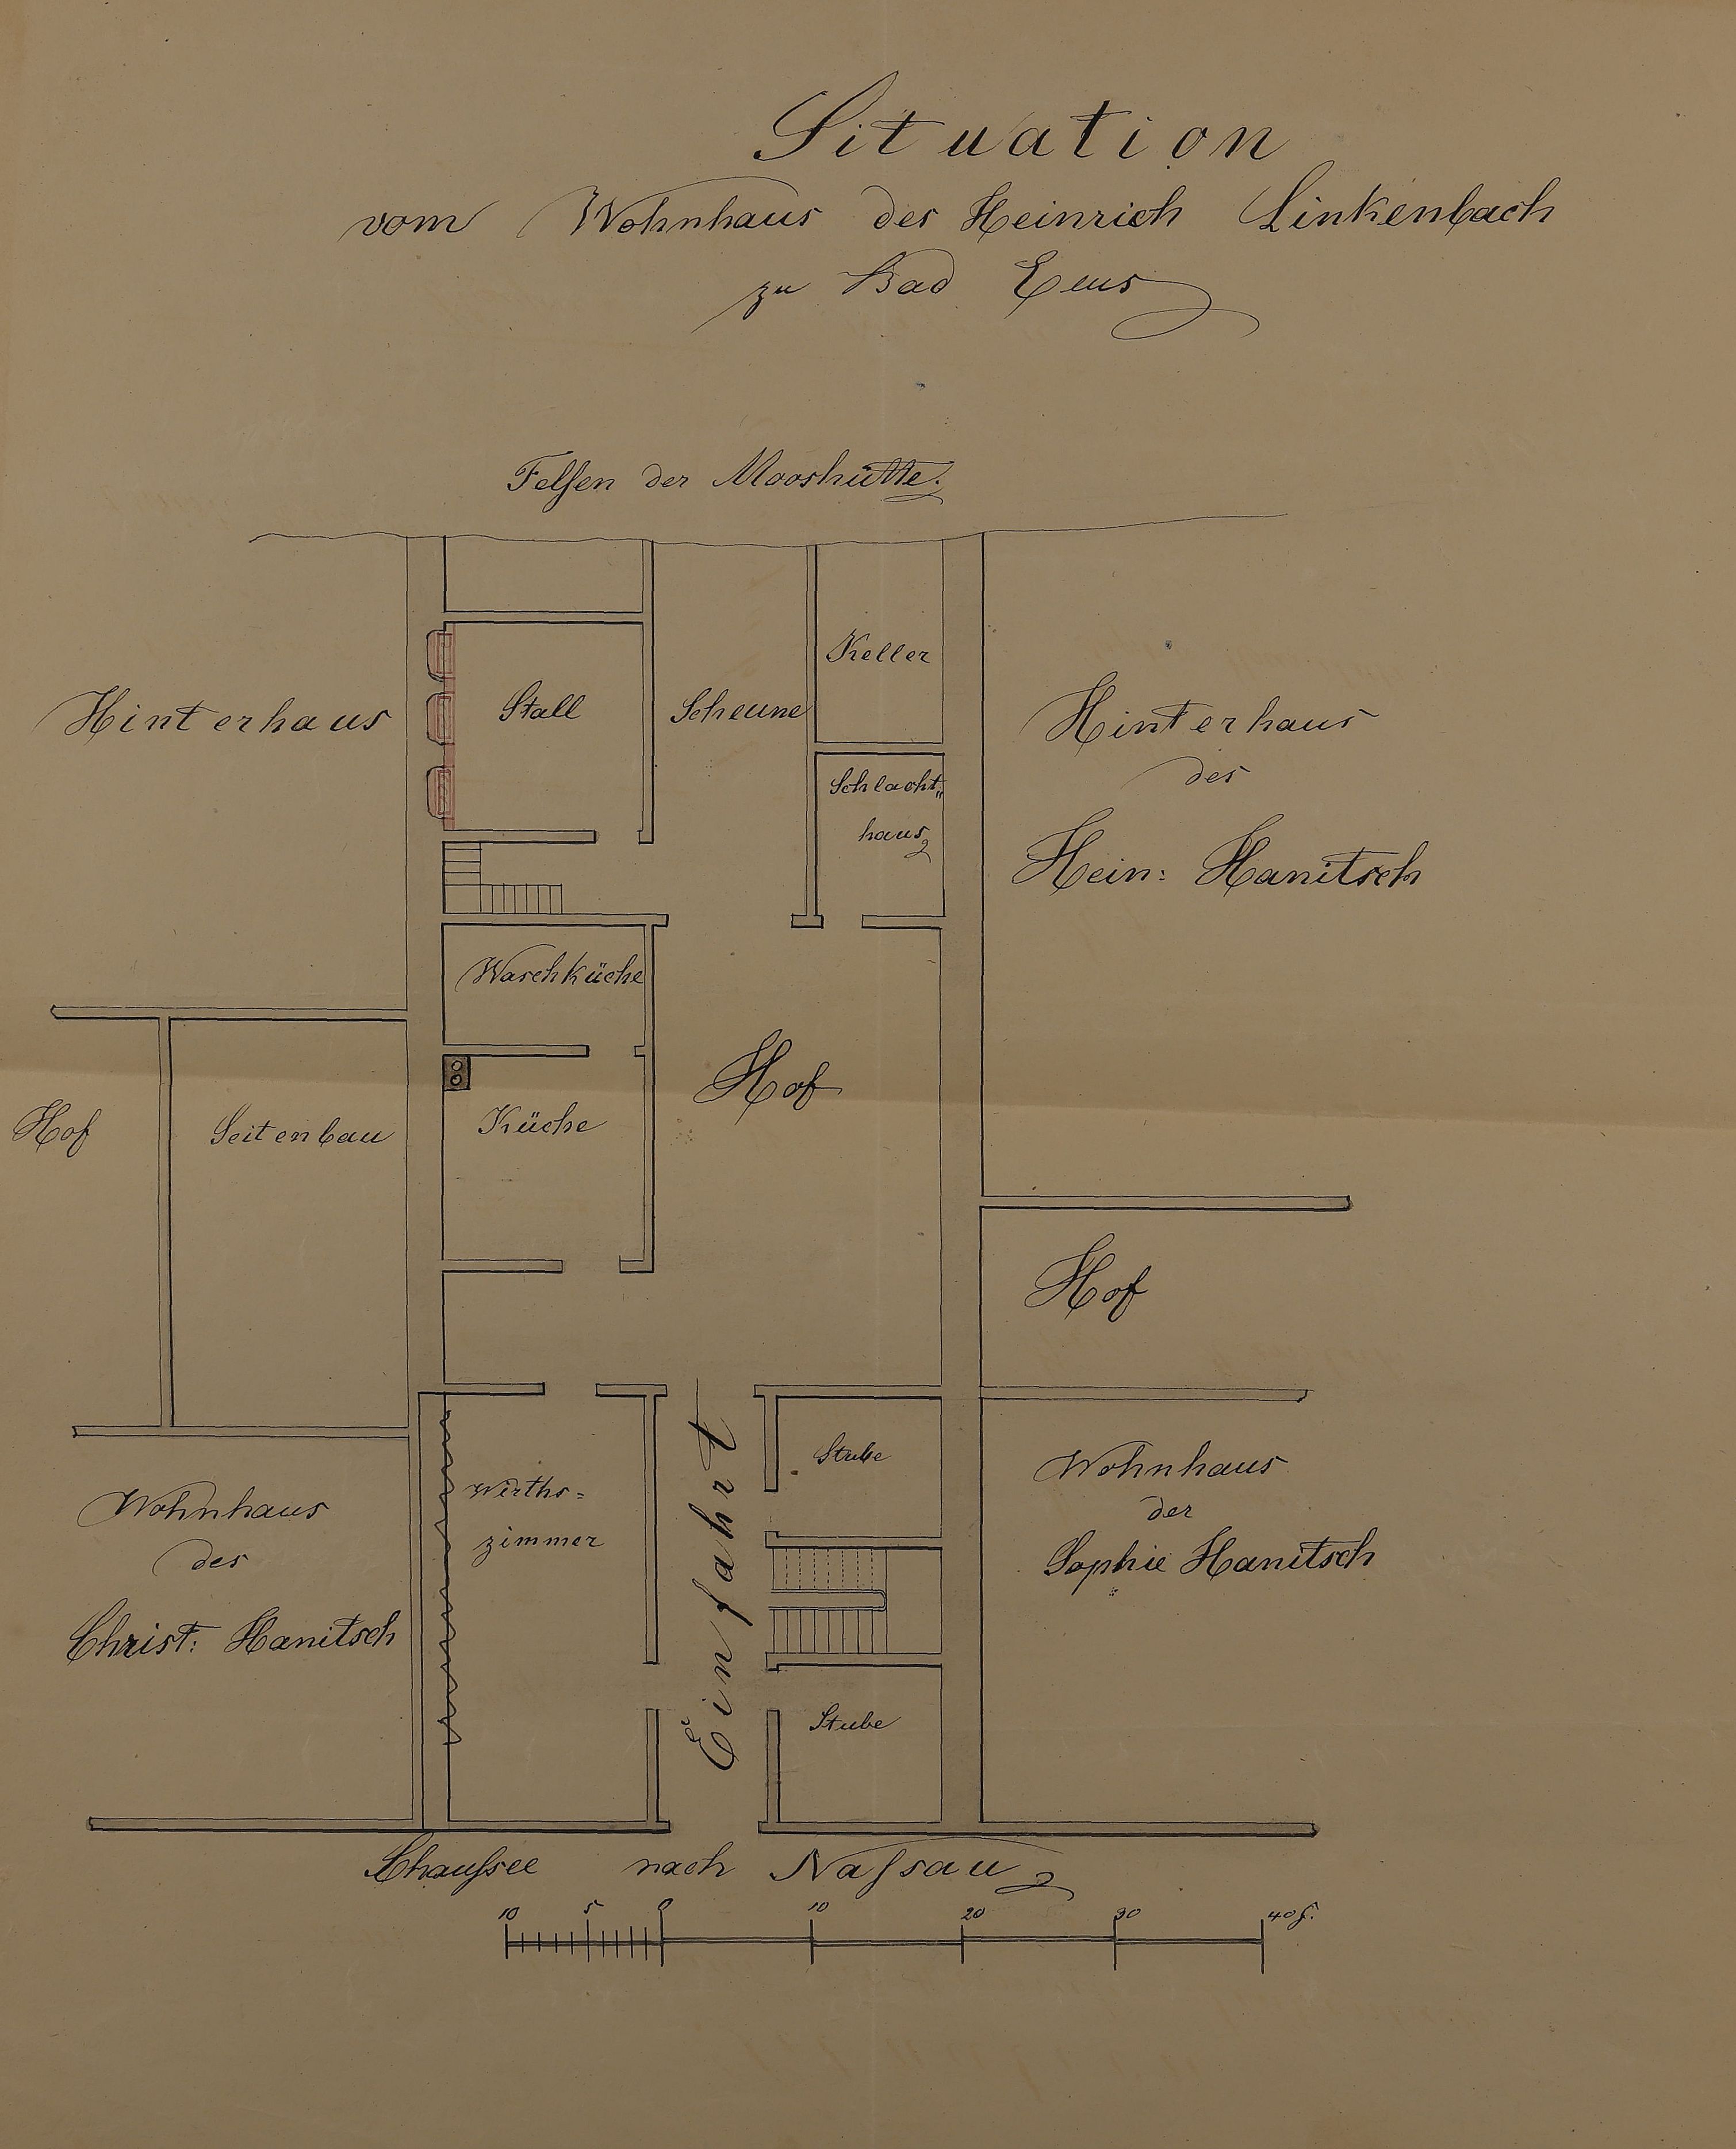 Situation
vom Wohnhaus des Heinrich Linkenbach
zu Bad Ems
Felsen der Mooshütte.
Keller
Stall
Scheune
Hinterhaus
Hinterhaus
des
Hein: Hanitsch
Schlacht„
haus
Waschküche
Hof
Küche
Hof
Seitenbau
Hof
Stube
Wirths=
zimmer
Einfahrt
Wohnhaus
des
Christ: Hanitsch
Wohnhaus
der
Sophie Hanitsch
Stube
Chaussee nach Nassau
10 5 0 10 20 30 40 f.